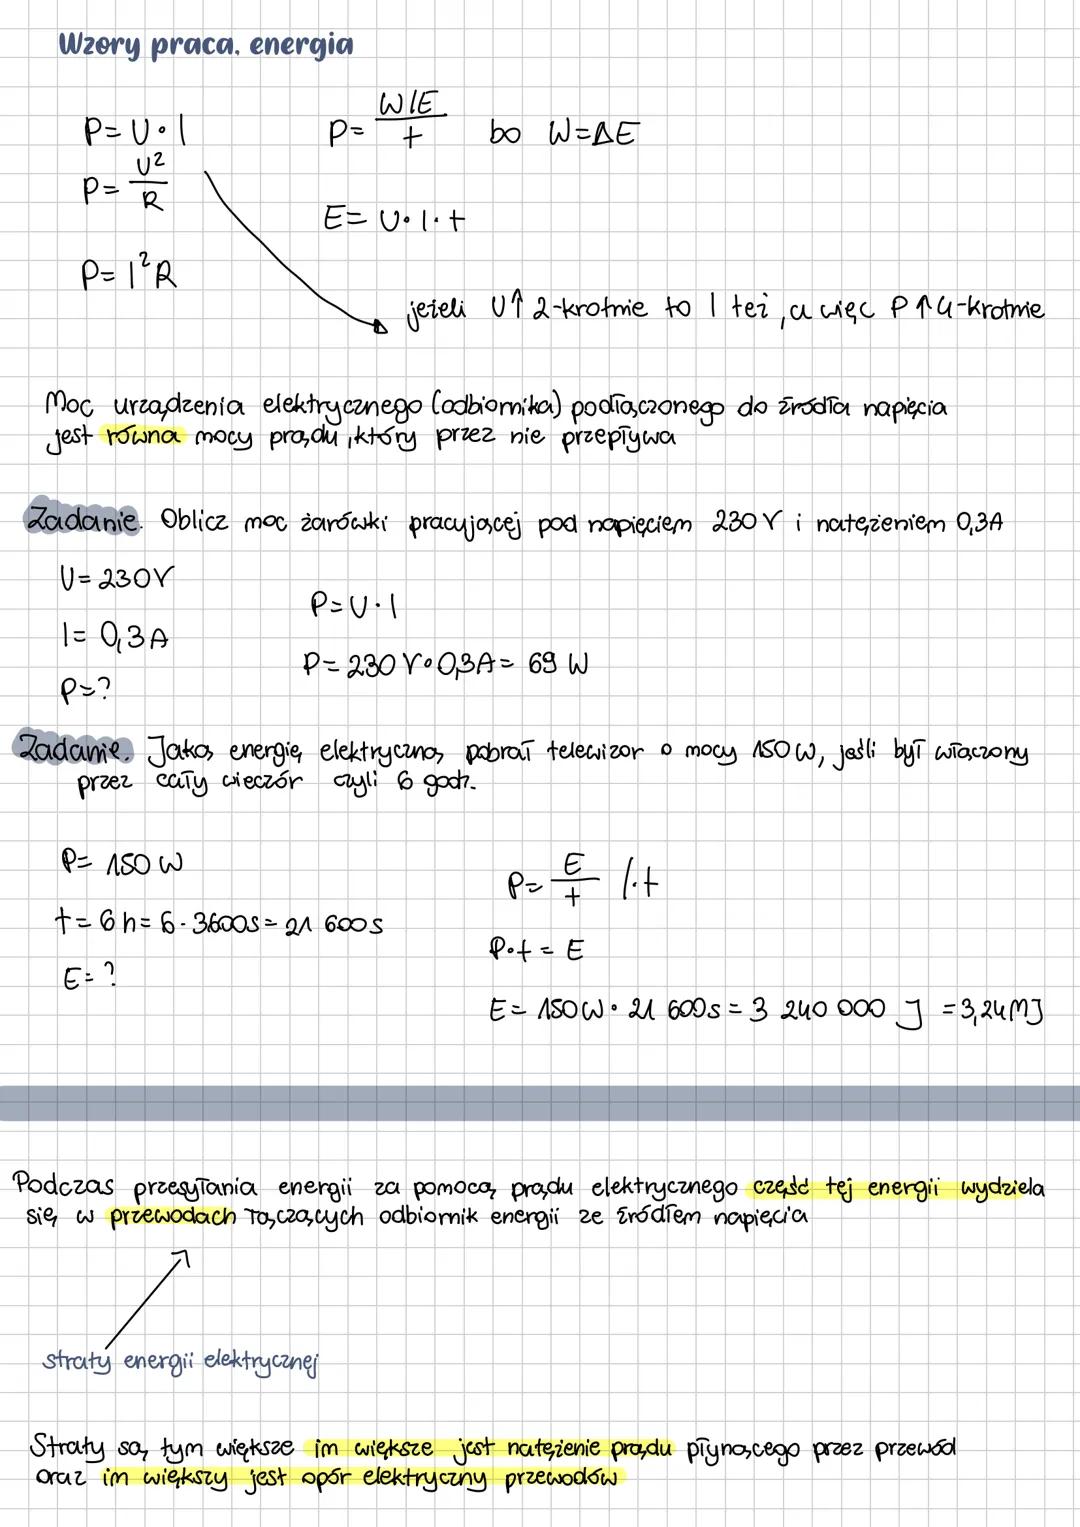 Wzory praca, energia
P = U · I
P = W/E / t bo W = ΔE
P = U² / R
E = U · I · t
P = I²R
jeżeli U↑ 2-krotnie to I też, a więc P↑ 4-krotnie
Moc urządzenia elektrycznego (odbiornika) podłączonego do źródła napięcia
jest równa mocy prądu, który przez nie przepływa
Zadanie. Oblicz moc żarówki pracującej pod napięciem 230 V i natężeniem 0,3A
U = 230V
I = 0,3A
P = ?
P = U · I
P = 230 V · 0,3A = 69 W
Zadanie. Jaką energię elektryczną pobrał telewizor o mocy 150 W, jeśli był włączony
przez cały wieczór czyli 6 godz.
P = 150 W
t = 6 h = 6 · 3600s = 21 600s
E = ?
P = E / t /·t
P · t = E
E = 150W · 21 600s = 3 240 000 J = 3,24MJ
Podczas przesyłania energii za pomocą prądu elektrycznego część tej energii wydziela
się w przewodach łączących odbiornik energii ze źródłem napięcia
straty energii elektrycznej
Straty są tym większe im większe jest natężenie prądu płynącego przez przewód
oraz im większy jest opór elektryczny przewodów